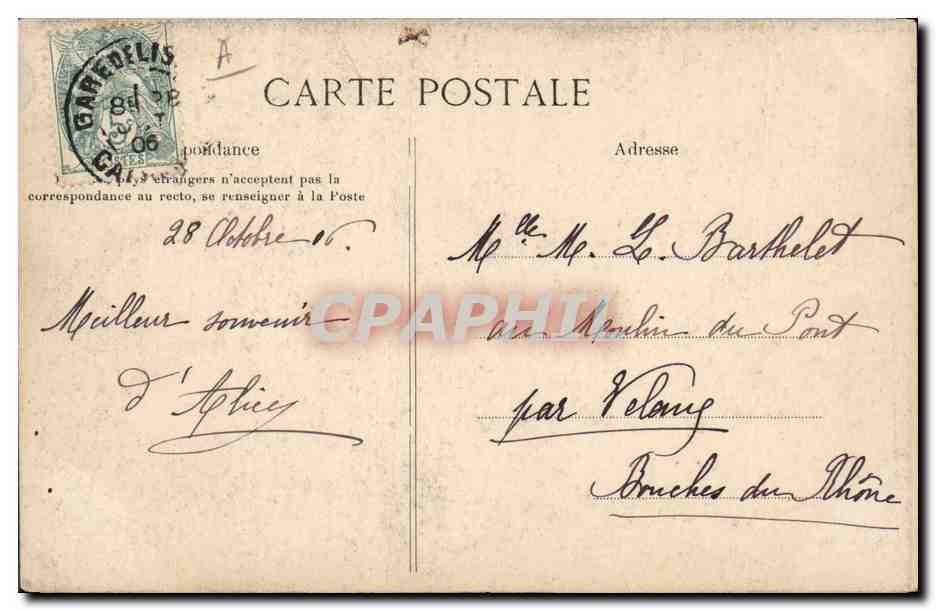 A
CARTE POSTALE
GARE DE LIS
8 28
06
CAL
5
TES
pondance
Adresse
pays étrangers n'acceptent pas la
correspondance au recto, se renseigner à la Poste
28 Octobre 06.
Meilleur souvenir
d'Alicy
Mlle M. L. Barthelet
au Moulin du Pont
par Velaug
Bouches du Rhône
CPAPHIL